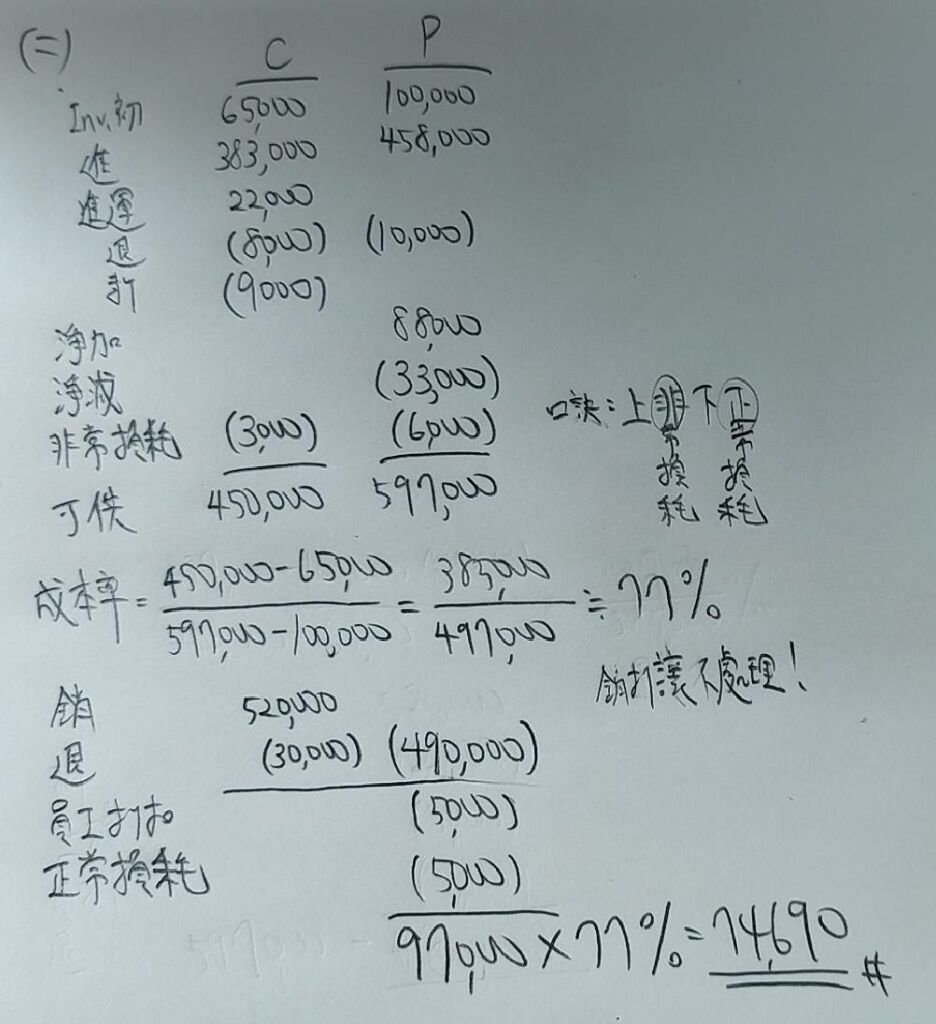 (二)
C P
Inv.初 65,000 100,000
進 383,000 458,000
進運 22,000
退 (8,000) (10,000)
折 (9000)
淨加 88,000
淨減 (33,000)
非常損耗 (3,000) (6,000)
口訣：上非下正
常損耗 常損耗
可供 450,000 597,000
成本率 = 450,000-65,000 / 597,000-100,000 = 385,000 / 497,000 ≒ 77%
銷折讓不處理！
銷 520,000
退 (30,000) (490,000)
員工折扣 (5,000)
正常損耗 (5,000)
97,000 × 77% = 74,690 #